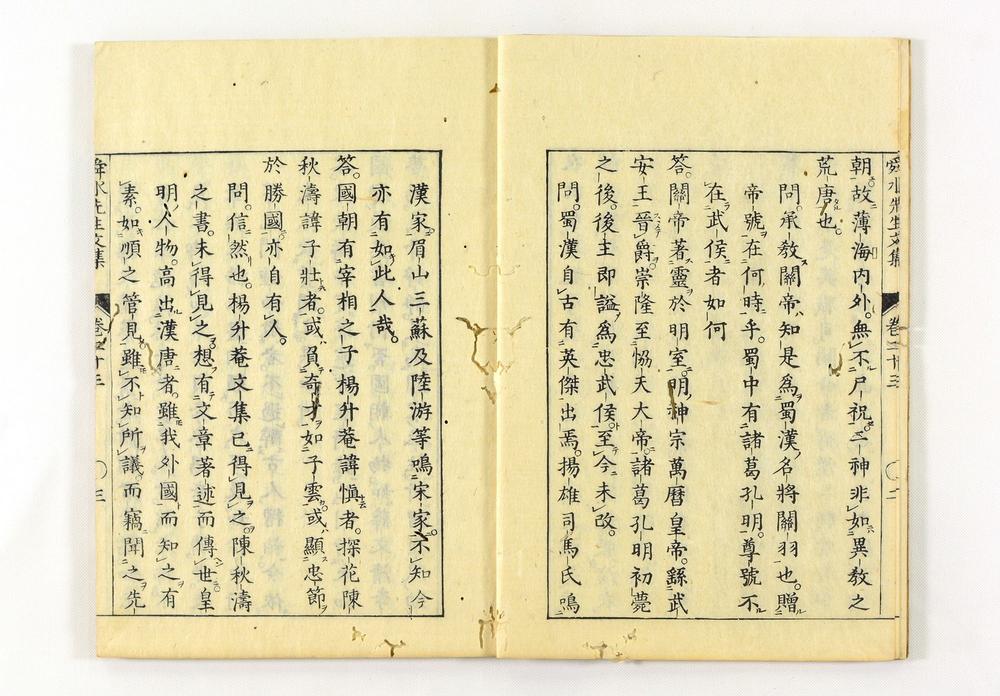 舜水先生文集
卷二十三
〇二
朝故薄海内外無不尸祝二神非如異教之
荒唐也
問承教關帝知是為蜀漢名將關羽也贈
帝號在何時乎蜀中有諸葛孔明尊號不
在武侯者如何
答關帝著靈於明室明神宗萬曆皇帝繇武
安王晉爵崇隆至協天大帝諸葛孔明初薨
之後後主即諡為忠武侯至今未改
問蜀漢自古有英傑出焉揚雄司馬氏鳴
漢家眉山三蘇及陸游等鳴宋家不知今
亦有如此人哉
答國朝有宰相之子楊升菴諱愼者探花陳
秋濤諱子壯者或負奇才如子雲或顯忠節
於勝國亦自有人
問信然也楊升菴文集已得見之陳秋濤
之書未得見之想有文章著述而傳世皇
明人物高出漢唐者雖我外國而知之有
素如順之管見雖不知所議而竊聞之先
舜水先生文集
卷二十三
〇三